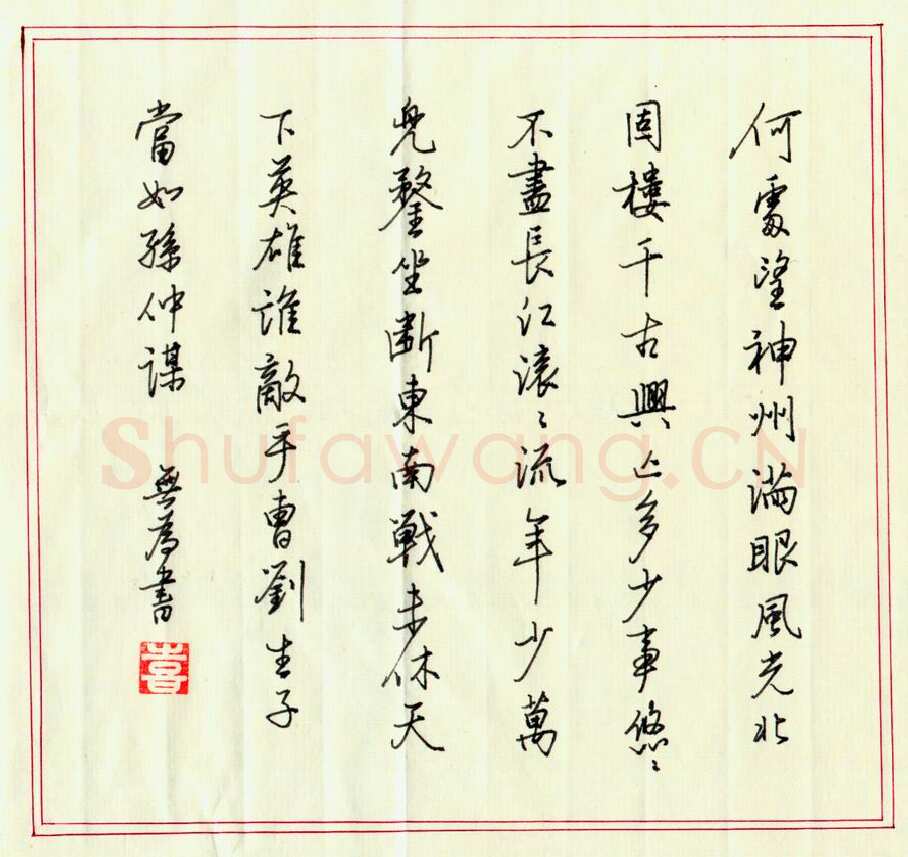 何處望神州滿眼風光北
固樓千古興亡多少事悠〻
不盡長江滾〻流年少萬
兜鍪坐斷東南戰未休天
下英雄誰敵手曹劉生子
當如孫仲謀
無為書
喜
Shufawang.CN